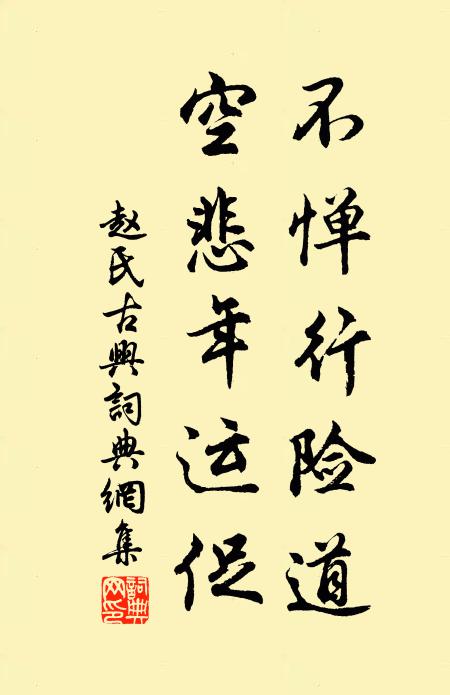 不惮行险道
空悲年运促
赵氏古典詞典網集
詞典